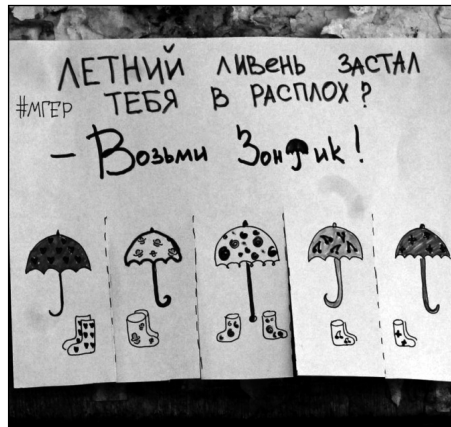 ЛЕТНИЙ ЛИВЕНЬ ЗАСТАЛ
#МГЕР ТЕБЯ В РАСПЛОХ?
– Возьми Зонтик!